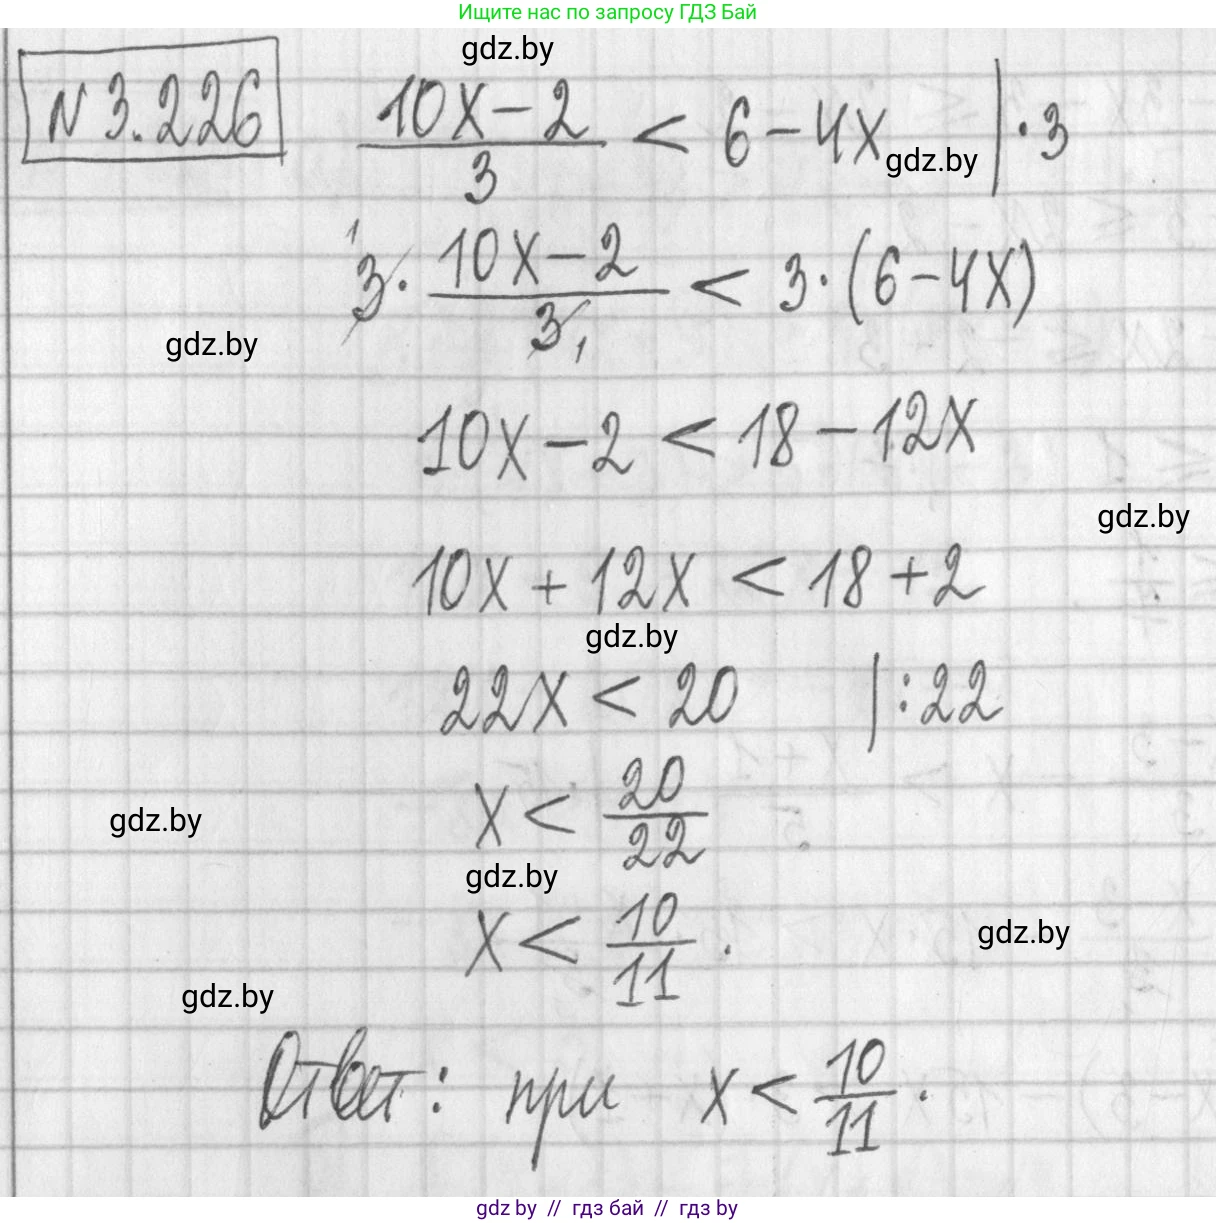 Ищите нас по запросу ГДЗ Бай
gdz.by
N 3.226
10x - 2 / 3 < 6 - 4x | · 3
gdz.by
¹3 · 10x - 2 / 3₁ < 3 · (6 - 4x)
gdz.by
10x - 2 < 18 - 12x
gdz.by
10x + 12x < 18 + 2
gdz.by
22x < 20 | : 22
x < 20/22
gdz.by
gdz.by
x < 10/11 .
gdz.by
gdz.by
Ответ: при x < 10/11 .
gdz.by // гдз бай // гдз by